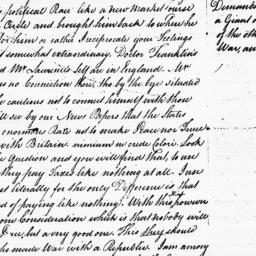 political Race like a new Market course
Circle and brought him back to where he
for him or rather Reciprocate your Feelings
somewhat extraordinary. Doctor Franklin's
and Mr Laurens's Self are in England. Mr
no Connection thro', tho by the bye situated
be cautious not to connect himself with those
will see by our News Papers that the States
enormous Rate not to make Peace nor Truce
with Britain. minimum crede Colori. Look
Question and you will find that, to use
they pay Taxes like nothing at all. Just
literally for the only Difference is that
of paying like nothing. With this however
your Consideration which is that nobody will
but a very good one. This they should
who made War with a Republic. I am among
Demands
a Grant of
of the oth
War and